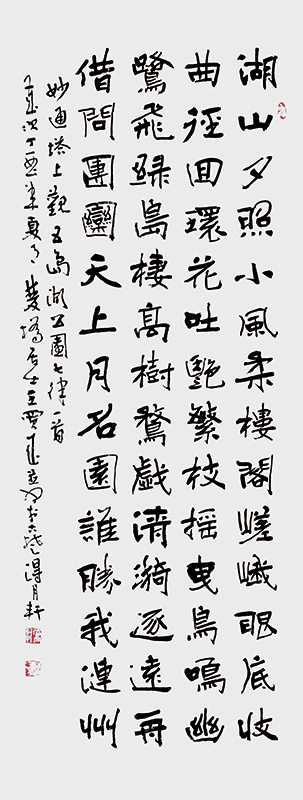 湖山夕照小風柔樓閣嵯峨眼底收
曲徑回環花吐艷繁枝摇曳鳥鳴幽
鷺飛綠島棲高樹鶩戲清漪逐遠舟
借問團圞天上月名園誰勝我漣州
妙通塔上觀五島湖公園七律一首
歲次丁酉年夏月 居士 得月軒